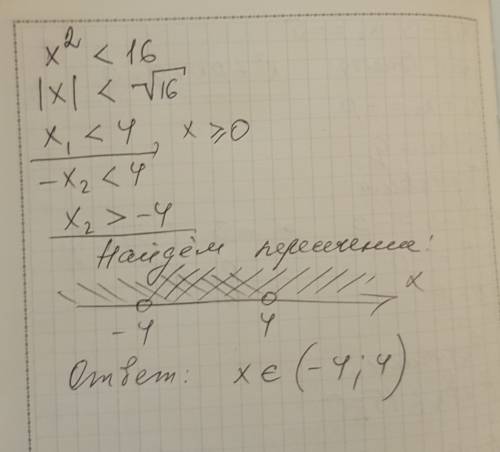 x² < 16
|x| < √16
x₁ < 4, x ≥ 0
-x₂ < 4
x₂ > -4
Найдём пересечения:
x
-4 4
Ответ: x ∈ (-4; 4)